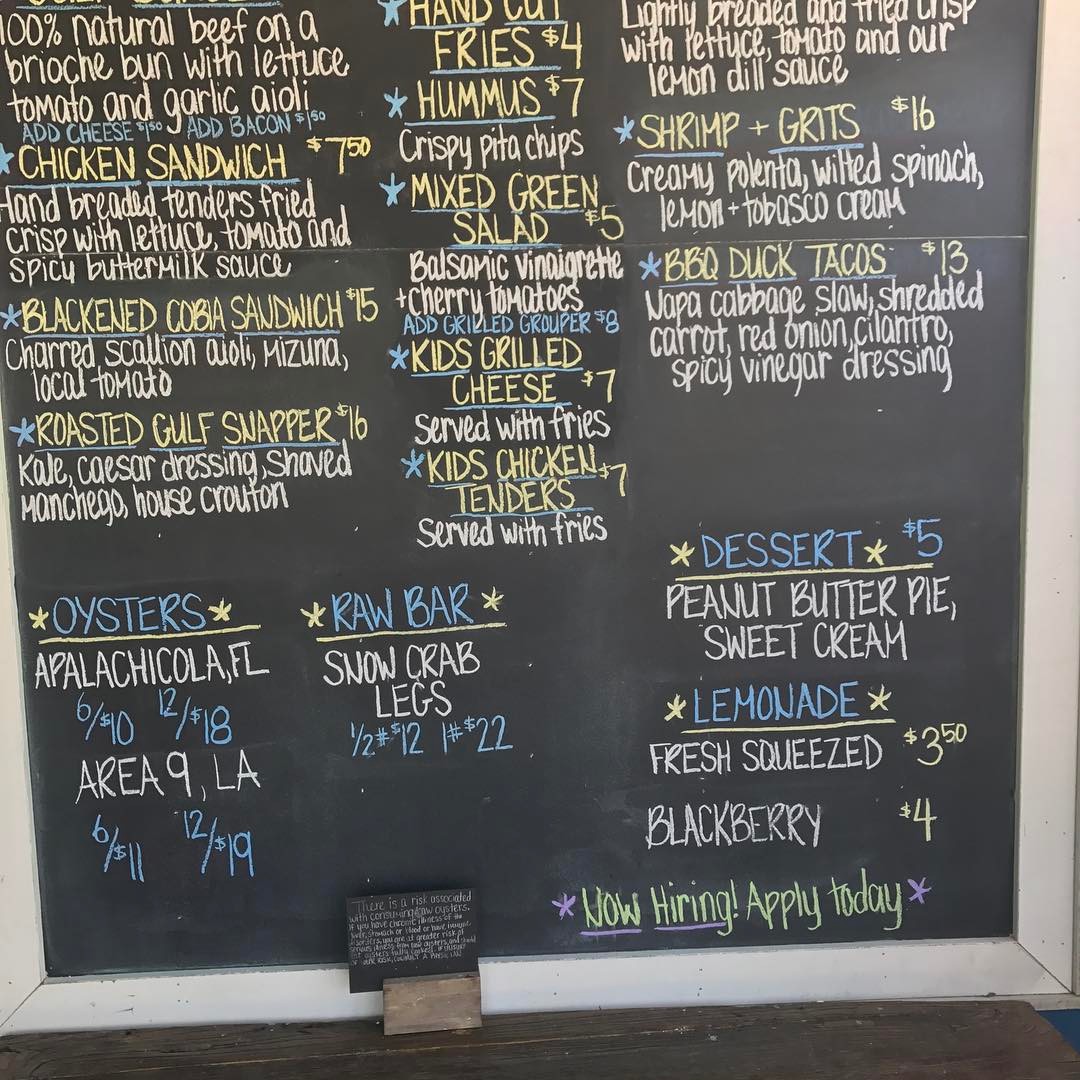 100% natural beef on a
brioche bun with lettuce
tomato and garlic aioli
ADD CHEESE $1.50 ADD BACON $1.50
*CHICKEN SANDWICH $7.50
Hand breaded tenders fried
crisp with lettuce, tomato and
spicy buttermilk sauce
*BLACKENED COBIA SANDWICH $15
Charred scallion aioli, mizuna,
local tomato
*ROASTED GULF SNAPPER $16
Kale, caesar dressing, shaved
manchego, house crouton
*HAND CUT
FRIES $4
*HUMMUS $7
Crispy pita chips
*MIXED GREEN
SALAD $5
Balsamic vinaigrette
+cherry tomatoes
ADD GRILLED GROUPER $8
*KIDS GRILLED
CHEESE $7
Served with fries
*KIDS CHICKEN
TENDERS $7
Served with fries
Lightly breaded and fried crisp
with lettuce, tomato and our
lemon dill sauce
*SHRIMP + GRITS $16
Creamy polenta, wilted spinach,
lemon + tobasco cream
*BBQ DUCK TACOS $13
Napa cabbage slaw, shredded
carrot, red onion, cilantro,
spicy vinegar dressing
*OYSTERS*
APALACHICOLA, FL
6/$10 12/$18
AREA 9, LA
6/$11 12/$19
*RAW BAR*
SNOW CRAB
LEGS
1/2#$12 1#$22
*DESSERT* $5
PEANUT BUTTER PIE,
SWEET CREAM
*LEMONADE*
FRESH SQUEEZED $3.50
BLACKBERRY $4
*Now Hiring! Apply today*
There is a risk associated
with consuming raw oysters.
If you have chronic illness of the
liver, stomach or blood or have immune
disorders, you are at greater risk of
serious illness from raw oysters, and should
eat oysters fully cooked.